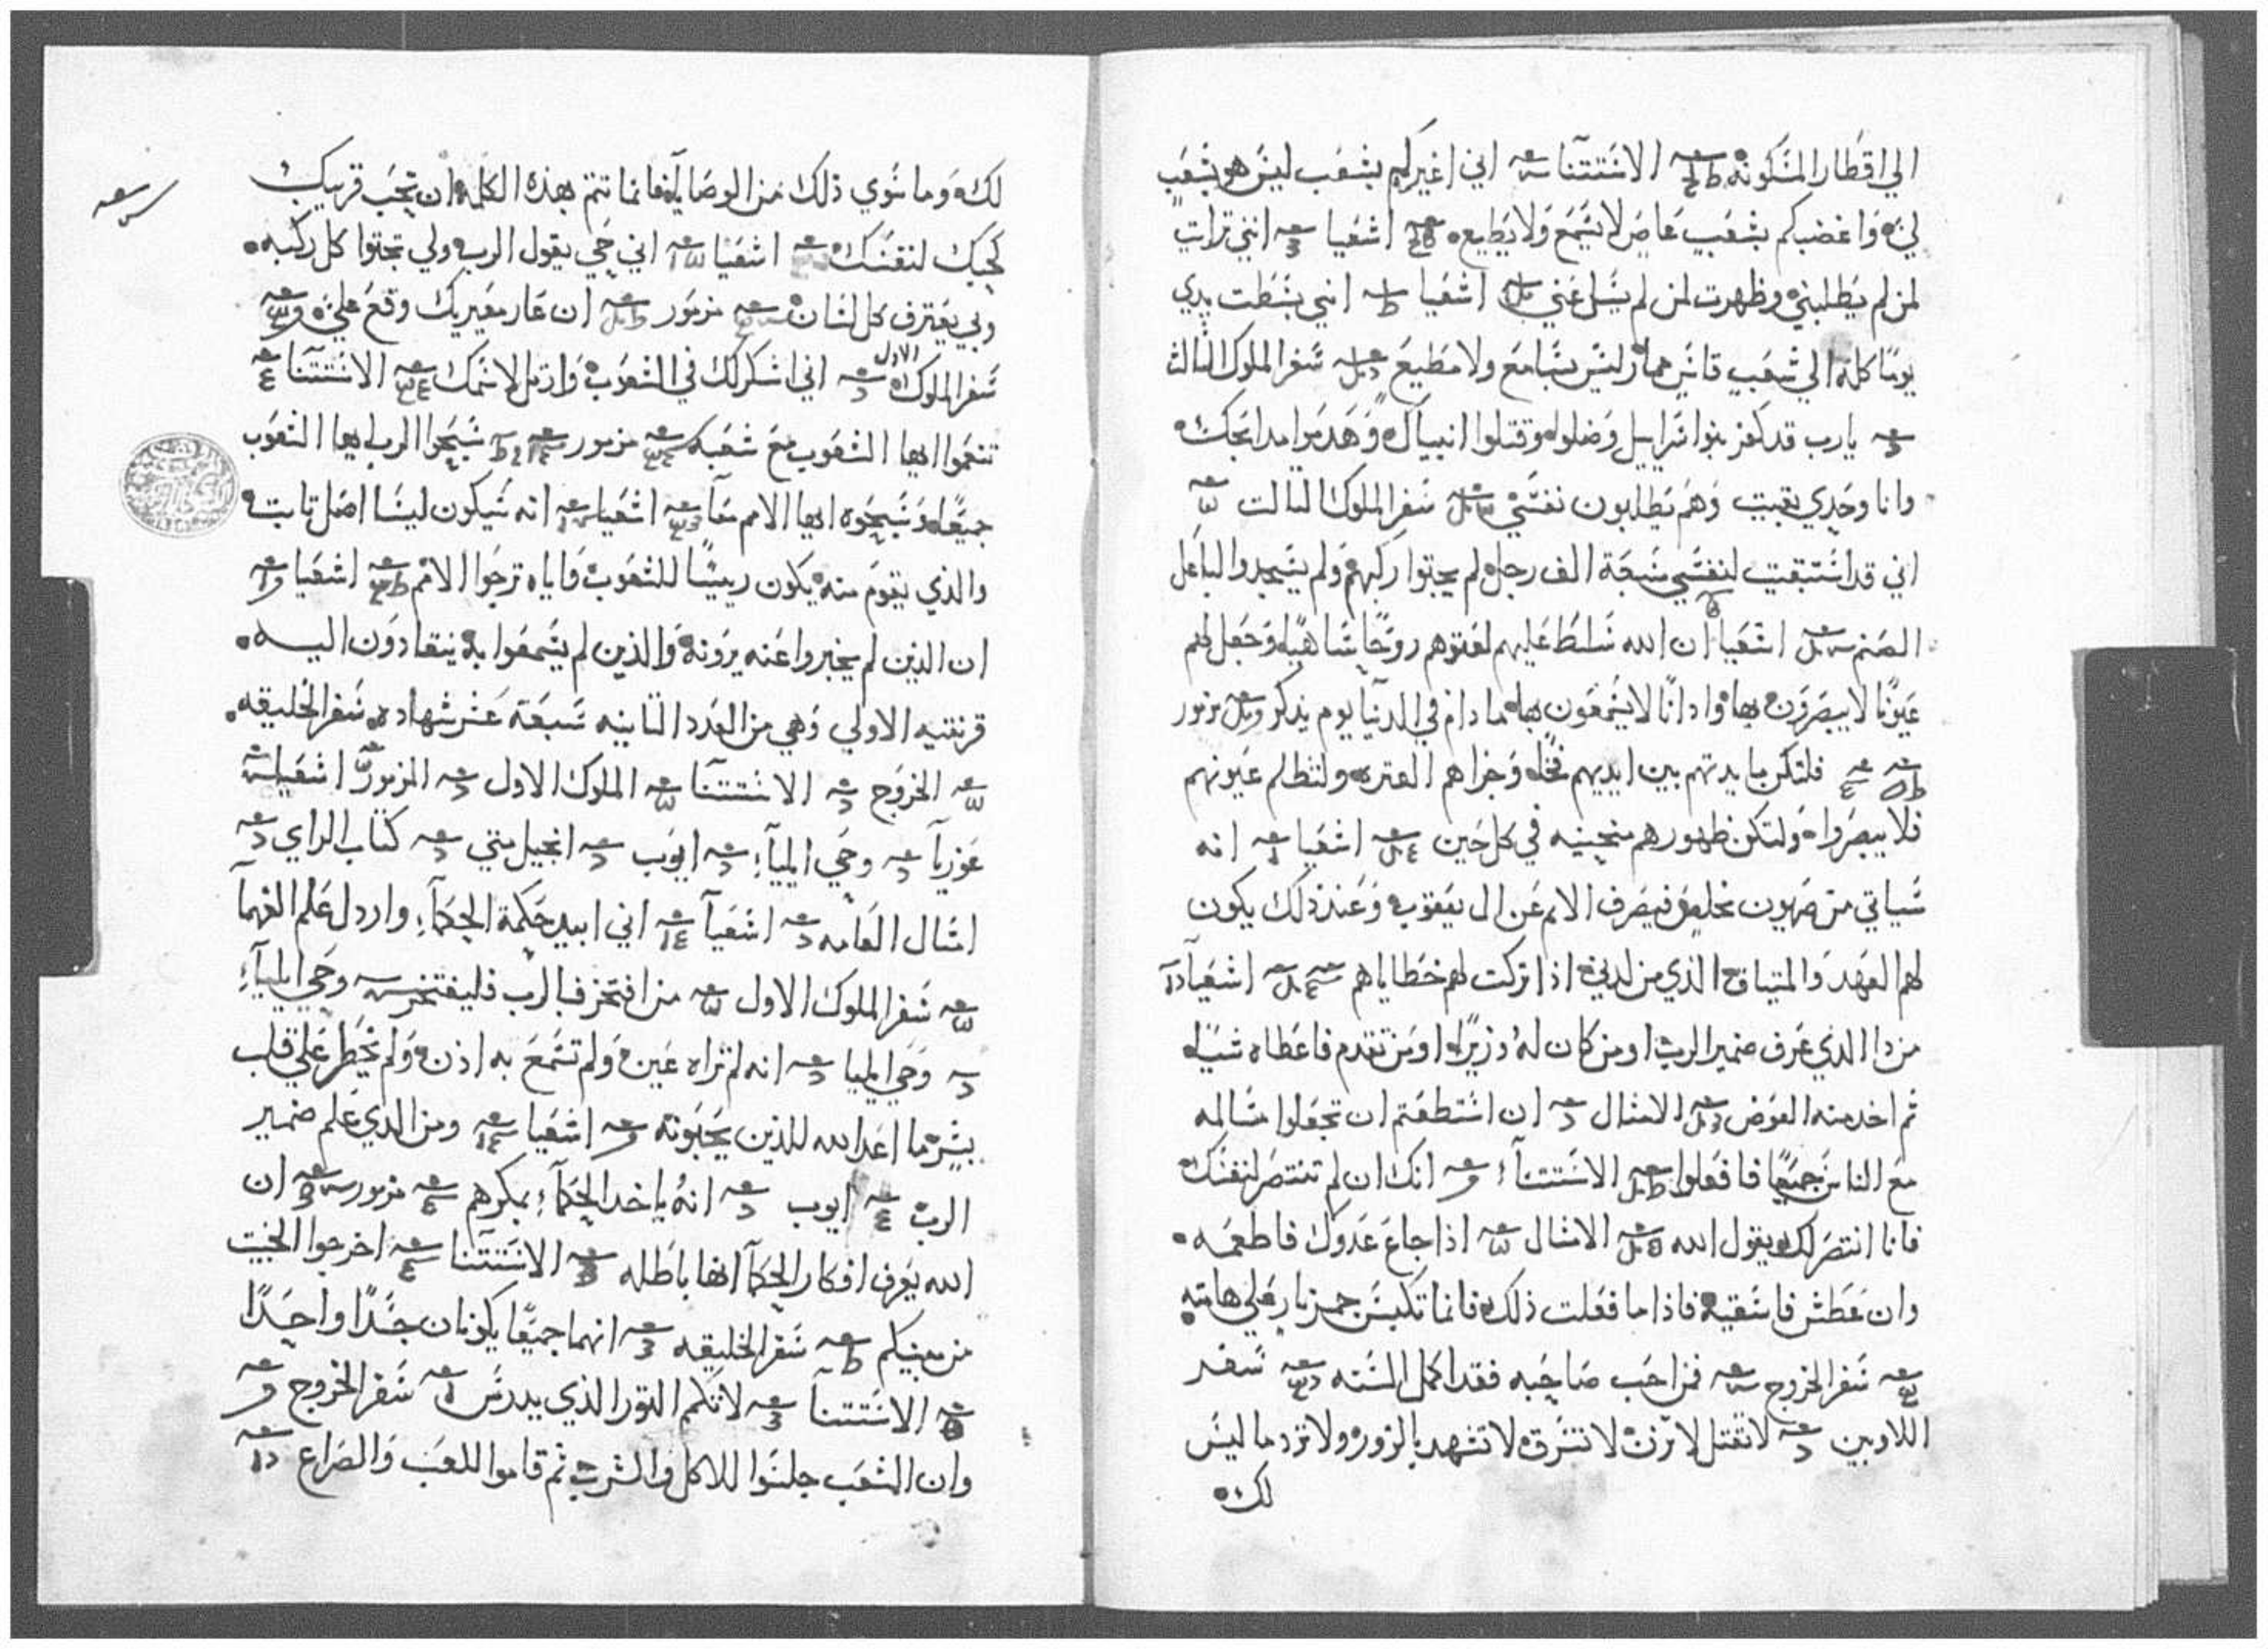 الي اقطار المسكونة الاستتنا اني اغيركم بشعب ليس هو بشعب
لي واغضبكم بشعب عاص لا يسمع ولا يطيع اشعيا انني تراات
لمن لم يطلبني وظهرت لمن لم يسل عني اشعيا انني بسطت يدي
يوما كله الي شعب قاس ليس بسامع ولا مطيع سفر الملوك الثالث
يارب قد كفر بنوا اسراييل وضلوا وقتلوا انبياك وهدموا مدابحك
وانا وحدي بقيت وهم يطلبون نفسي سفر الملوك الثالت
اني قد استبقيت لنفسي سبعة الف رجل لم يجتوا ركبهم ولم يسجدوا لباعل
الصنم اشعيا ان الله سلط عليهم لعتوهم روحا ساهيا وجعل لهم
عيونا لا يبصرون بها واذانا لا يسمعون بها ما دام في الدنيا يوم يذكر مزمور
فلتكن مايدتهم بين ايديهم فخا وجزاهم العتره ولتظلم عيونهم
فلا يبصروا ولتكن ظهورهم منحنيه في كل حين اشعيا انه
سياتي من صهيون مخلص فيصرف الاثم عن ال يعقوب وعند ذلك يكون
لهم العهد والميتاق الذي من لدني اذا تركت لهم خطاياهم اشعيا
من دا الدي عرف ضمير الرب او من كان له وزيرا او من تقدم فاعطاه شيا
ثم اخد منه العوض الامثال ان استطعتم ان تجعلوا مسالمه
مع الناس جميعا فافعلوا الاستتنا انك ان لم تنتصر لنفسك
فانا انتصر لك يقول الله الامثال اذا جاع عدوك فاطعمه
وان عطش فاسقيه فاذا ما فعلت ذلك فانما تكبس جمر نار علي هامته
سفر الخروج فمن احب صاحبه فقد اكمل السنه سفر
اللاويين لا تقتل لا تزن لا تسرق لا تشهد بالزور ولا ترد ما ليس
لك
لك وما سوي ذلك من الوصايا فانما تتم بهذه الكلمه ان تحب قريبك
كحبك لنفسك اشعيا اني حي يقول الرب ولي تجتوا كل ركبه
وبي يعترف كل لسان مزمور ان عار معيريك وقع علي
سفر الملوك الاول اني اشكرك في الشعوب وارتل لاسمك الاستتنا
تنعموا ايها الشعوب مع شعبه مزمور سبحوا الرب ايها الشعوب
جميعا وسبحوه ايها الامم معا اشعيا انه سيكون ليسا اصل تابت
والذي يقوم منه يكون رييسا للشعوب واياه ترجوا الامم اشعيا
ان الذين لم يخبروا عنه يرونه والذين لم يسمعوا به ينقادون اليه
قرنتيه الاولي وهي من العدد التانيه سبعة عشر شهاده سفر الخليقه
الخروج الاستتنا الملوك الاول المزمور اشعيا
عوزيا وحي ايليا ايوب انجيل متي كتاب الراي
امثال العامه اشعيا اني ابيد حكمة الحكما واردل علم الفهما
سفر الملوك الاول من افتخر فبالرب فليفتخر وحي ايليا
وحي ايليا انه لم تراه عين ولم تسمع به اذن ولم يخطر علي قلب
بشر ما اعد الله للذين يحبونه اشعيا ومن الدي علم ضمير
الرب ايوب انه ياخد الحكما بمكرهم مزمور ان
الله يعرف افكار الحكما انها باطله الاستتنا اخرجوا الخبيت
من بينكم سفر الخليقه انهما جميعا يكونان جسدا واحدا
الاستتنا لا تكم التور الذي يدرس سفر الخروج
وان الشعب جلسوا للاكل والشرب ثم قاموا للعب والصراع